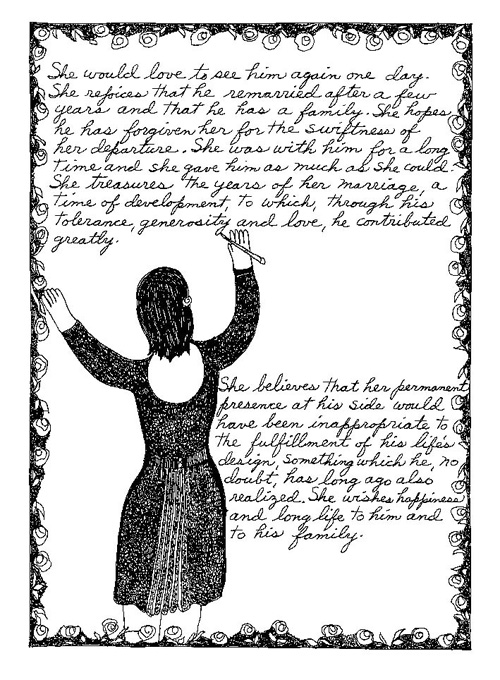 She would love to see him again one day.
She rejoices that he remarried after a few
years and that he has a family. She hopes
he has forgiven her for the swiftness of
her departure. She was with him for a long
time and she gave him as much as she could.
She treasures the years of her marriage, a
time of development, to which, through his
tolerance, generosity and love, he contributed
greatly.
She believes that her permanent
presence at his side would
have been inappropriate to
the fulfillment of his life's
design, something which he, no
doubt, has long ago also
realized. She wishes happiness
and long life to him and
to his family.